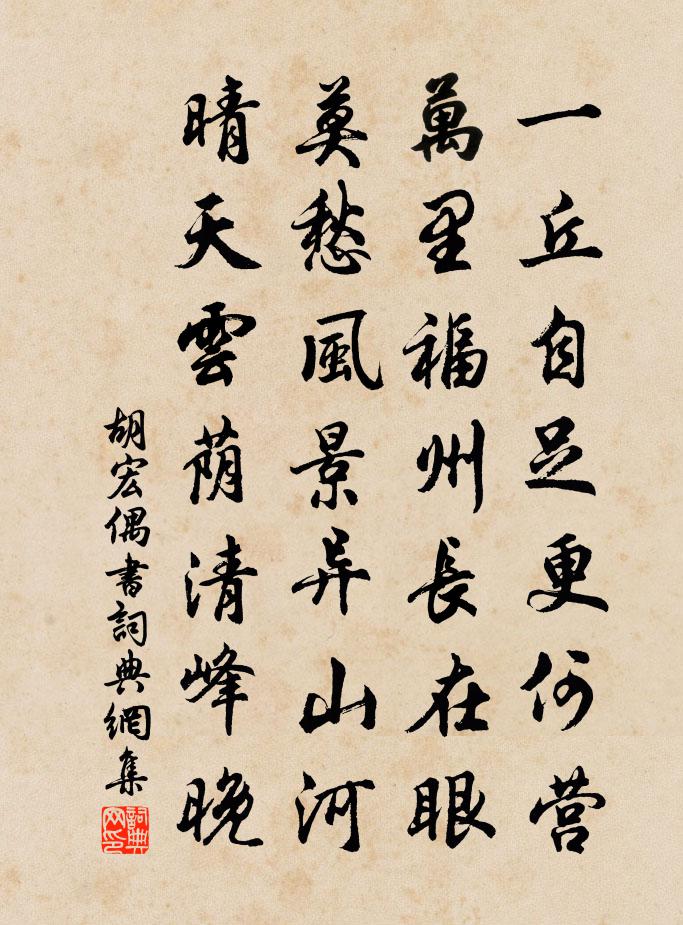 一丘自足更何营
萬里福州長在眼
莫愁風景异山河
晴天雲荫清峰晚
胡宏偶書詞典網集
詞典网印